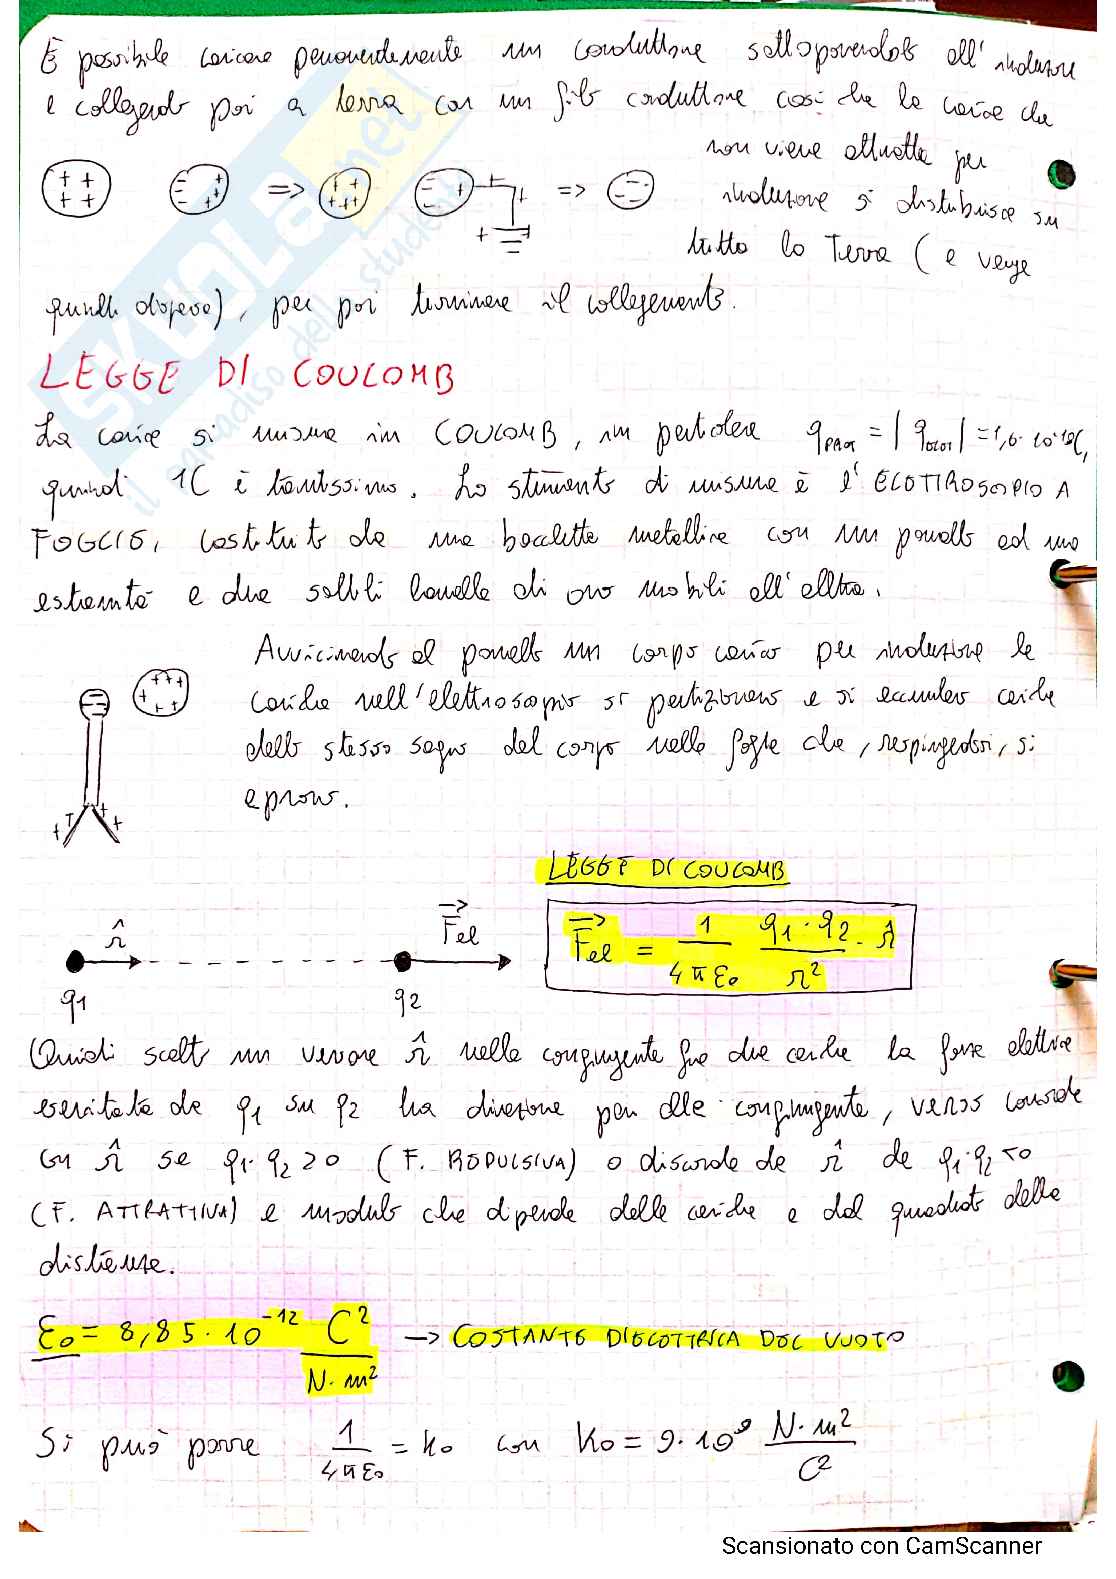 È possibile caricare permanentemente un conduttore sottoponendolo all'induzione
e collegando poi a terra con un filo conduttore così che la carica che
non viene attratta per
induzione si distribuisce su
tutta la Terra ( e venga
quindi dispersa), per poi terminare il collegamento.
++ ++ => ++++ => --
SKUOLA.net
il paradiso dello studente
LEGGE DI COULOMB
La carica si misura in COULOMB, in particolare qPROT = | qELET | = 1,6·10-19C,
quindi 1C è tantissimo. Lo strumento di misura è l'ELOTTROSCOPIO A
FOGLIE, costituito da una bacchetta metallica con un pomello ad una
estremità e due sottili lamelle di oro mobili all'altra.
Avvicinando al pomello un corpo carico per induzione le
cariche nell'elettroscopio si partizionano e si accumulano cariche
dello stesso segno del corpo nelle foglie che, respingendosi, si
aprono.
LEGGE DI COULOMB
r̂ F⃗el
q1 q2
F⃗el = 1/4πε0 q1·q2/r² · r̂
Quindi scelto un versore r̂ nella congiungente fra due cariche la forza elettrica
esercitata da q1 su q2 ha direzione pari alla congiungente, verso concorde
con r̂ se q1·q2>0 (F. REPULSIVA) o discorde da r̂ se q1·q2<0
(F. ATTRATTIVA) e modulo che dipende dalle cariche e dal quadrato della
distanza.
ε0 = 8,85·10⁻¹² C²/N·m² → COSTANTE DIELETTRICA DEL VUOTO
Si può porre 1/4πε0 = K0 con K0 = 9·10⁹ N·m²/C²
Scansionato con CamScanner